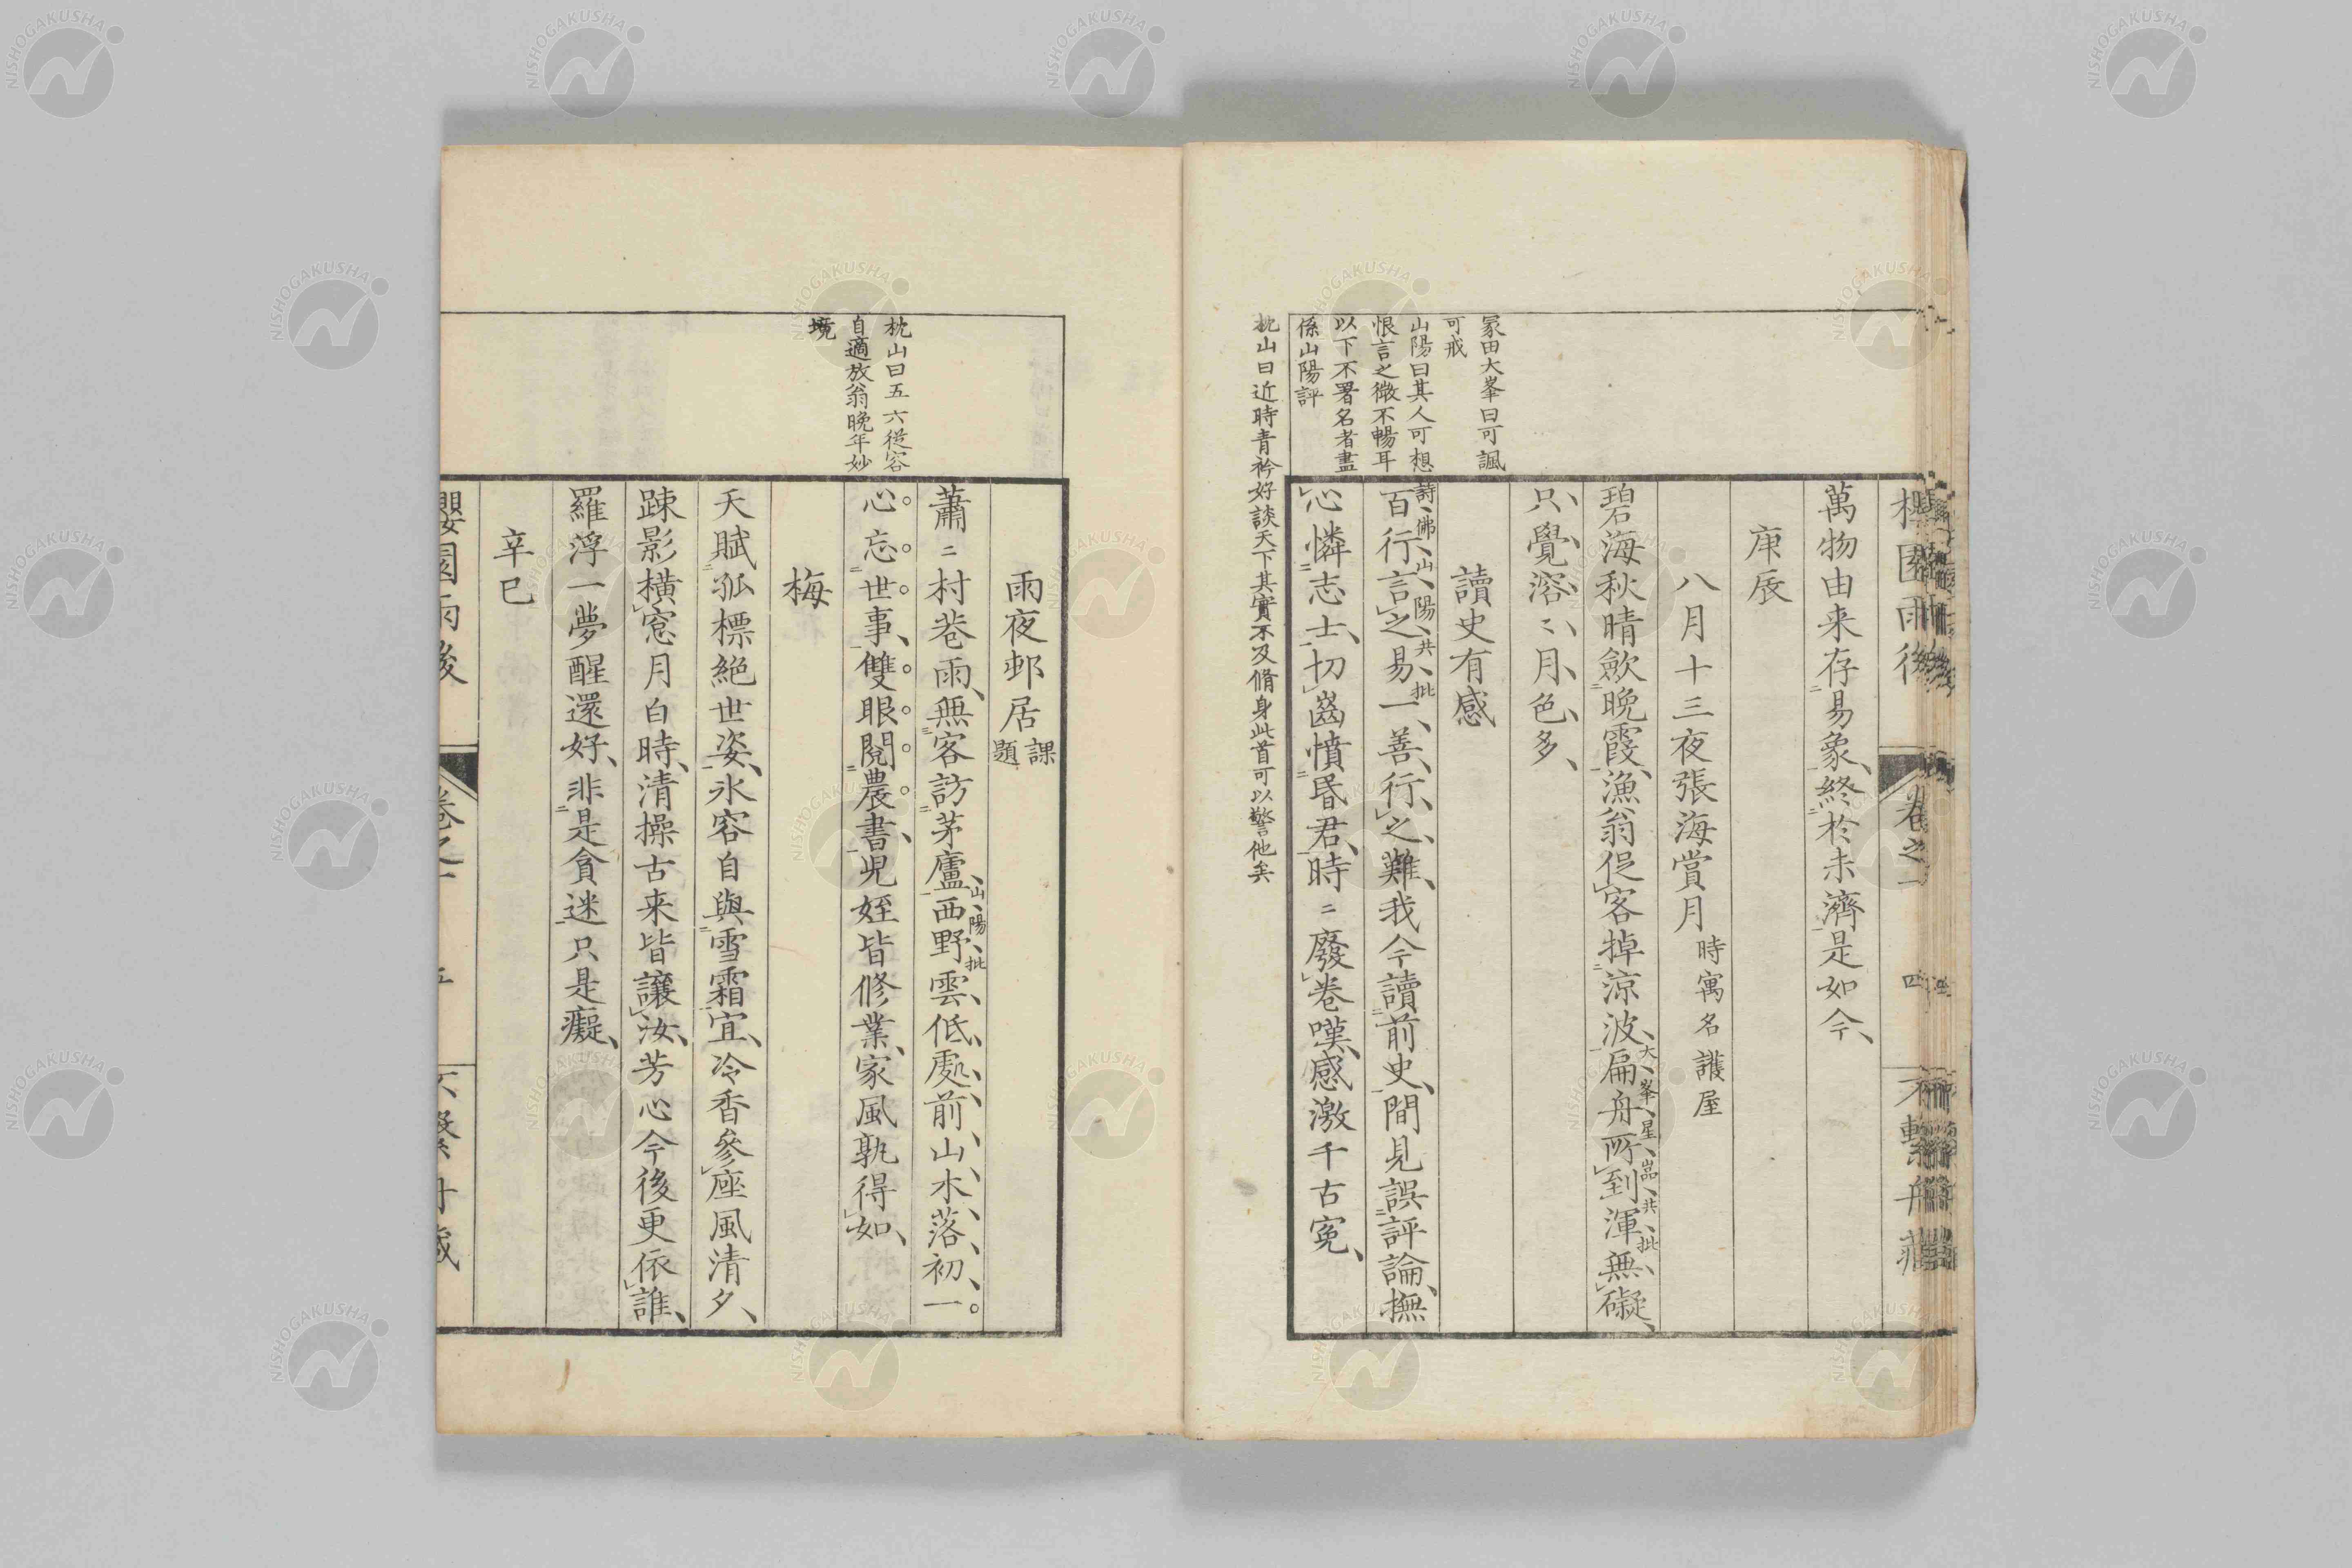 萬物由来存易象終於未濟是如今
庚辰
八月十三夜張海賞月時寓名護屋
碧海秋晴歛晩霞漁翁促客掉涼波扁舟所到渾無礙
大峯星嵓共批
只覺溶〻月色多
讀史有感
詩佛山陽共批
百行言之易一善行之難我今讀前史間見誤評論撫
心憐志士切齒憤昏君時〻廢卷嘆感激千古寃
冢田大峯曰可諷
可戒
山陽曰其人可想
恨言之微不暢耳
以下不署名者盡
係山陽評
枕山曰近時青衿好談天下其實不及脩身此首可以警他矣
卷之一
四
雨夜邨居課題
蕭〻村巷雨無客訪茅廬西野雲低處前山木落初一
山陽批
心忘世事雙眼閱農書児姪皆修業家風孰得如
梅
天賦孤標絶世姿氷容自與雪霜宜冷香參座風清夕
踈影橫窓月白時清操古来皆讓汝芳心今後更依誰
羅浮一夢醒還好非是貪迷只是癡
辛巳
枕山曰五六従容
自適放翁晩年妙
境
NISHOGAKUSHA